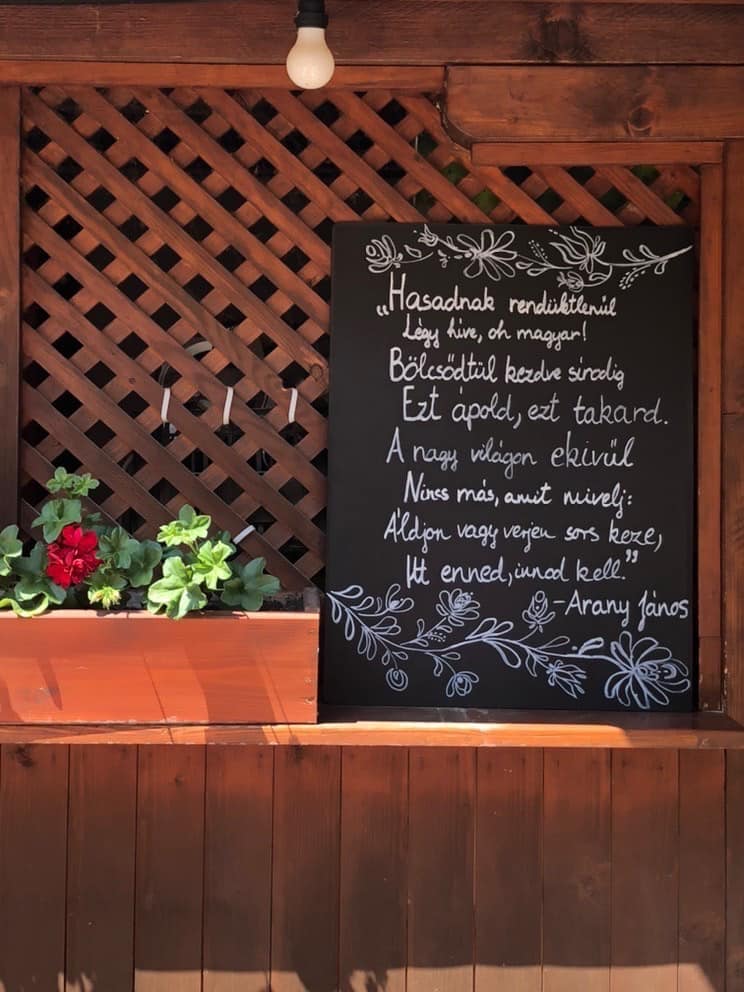 „Hasadnak rendüktlenül
Légy híve, oh magyar!
Bölcsődtül kezdve sirodig
Ezt ápold, ezt takard.
A nagy világon ekivül
Nincs más, amit mivelj:
Áldjon vagy verjen sors keze,
Itt enned, innod kell."
-Arany János